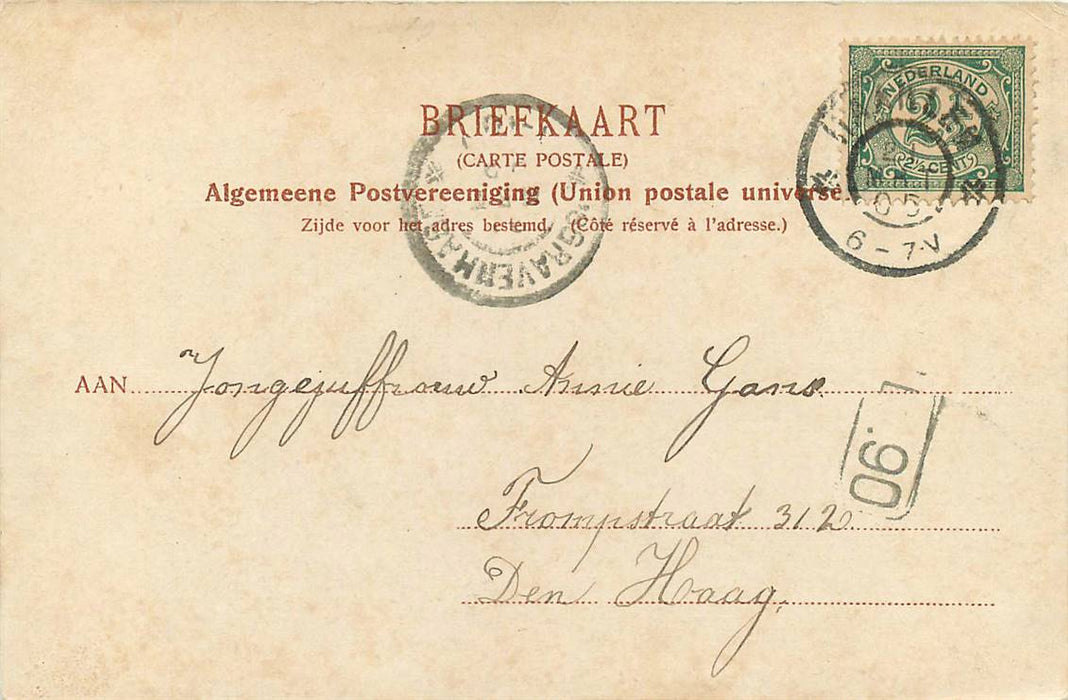 BRIEFKAART
(CARTE POSTALE)
Algemeene Postvereeniging (Union postale universe
Zijde voor het adres bestemd. (Côté réservé à l'adresse.)
NEDERLAND
2½
2½ CENT
6-7V
'SGRAVENHA
AAN Jongejuffrouw Annie Gans.
06.
Trompstraat 312
Den Haag.